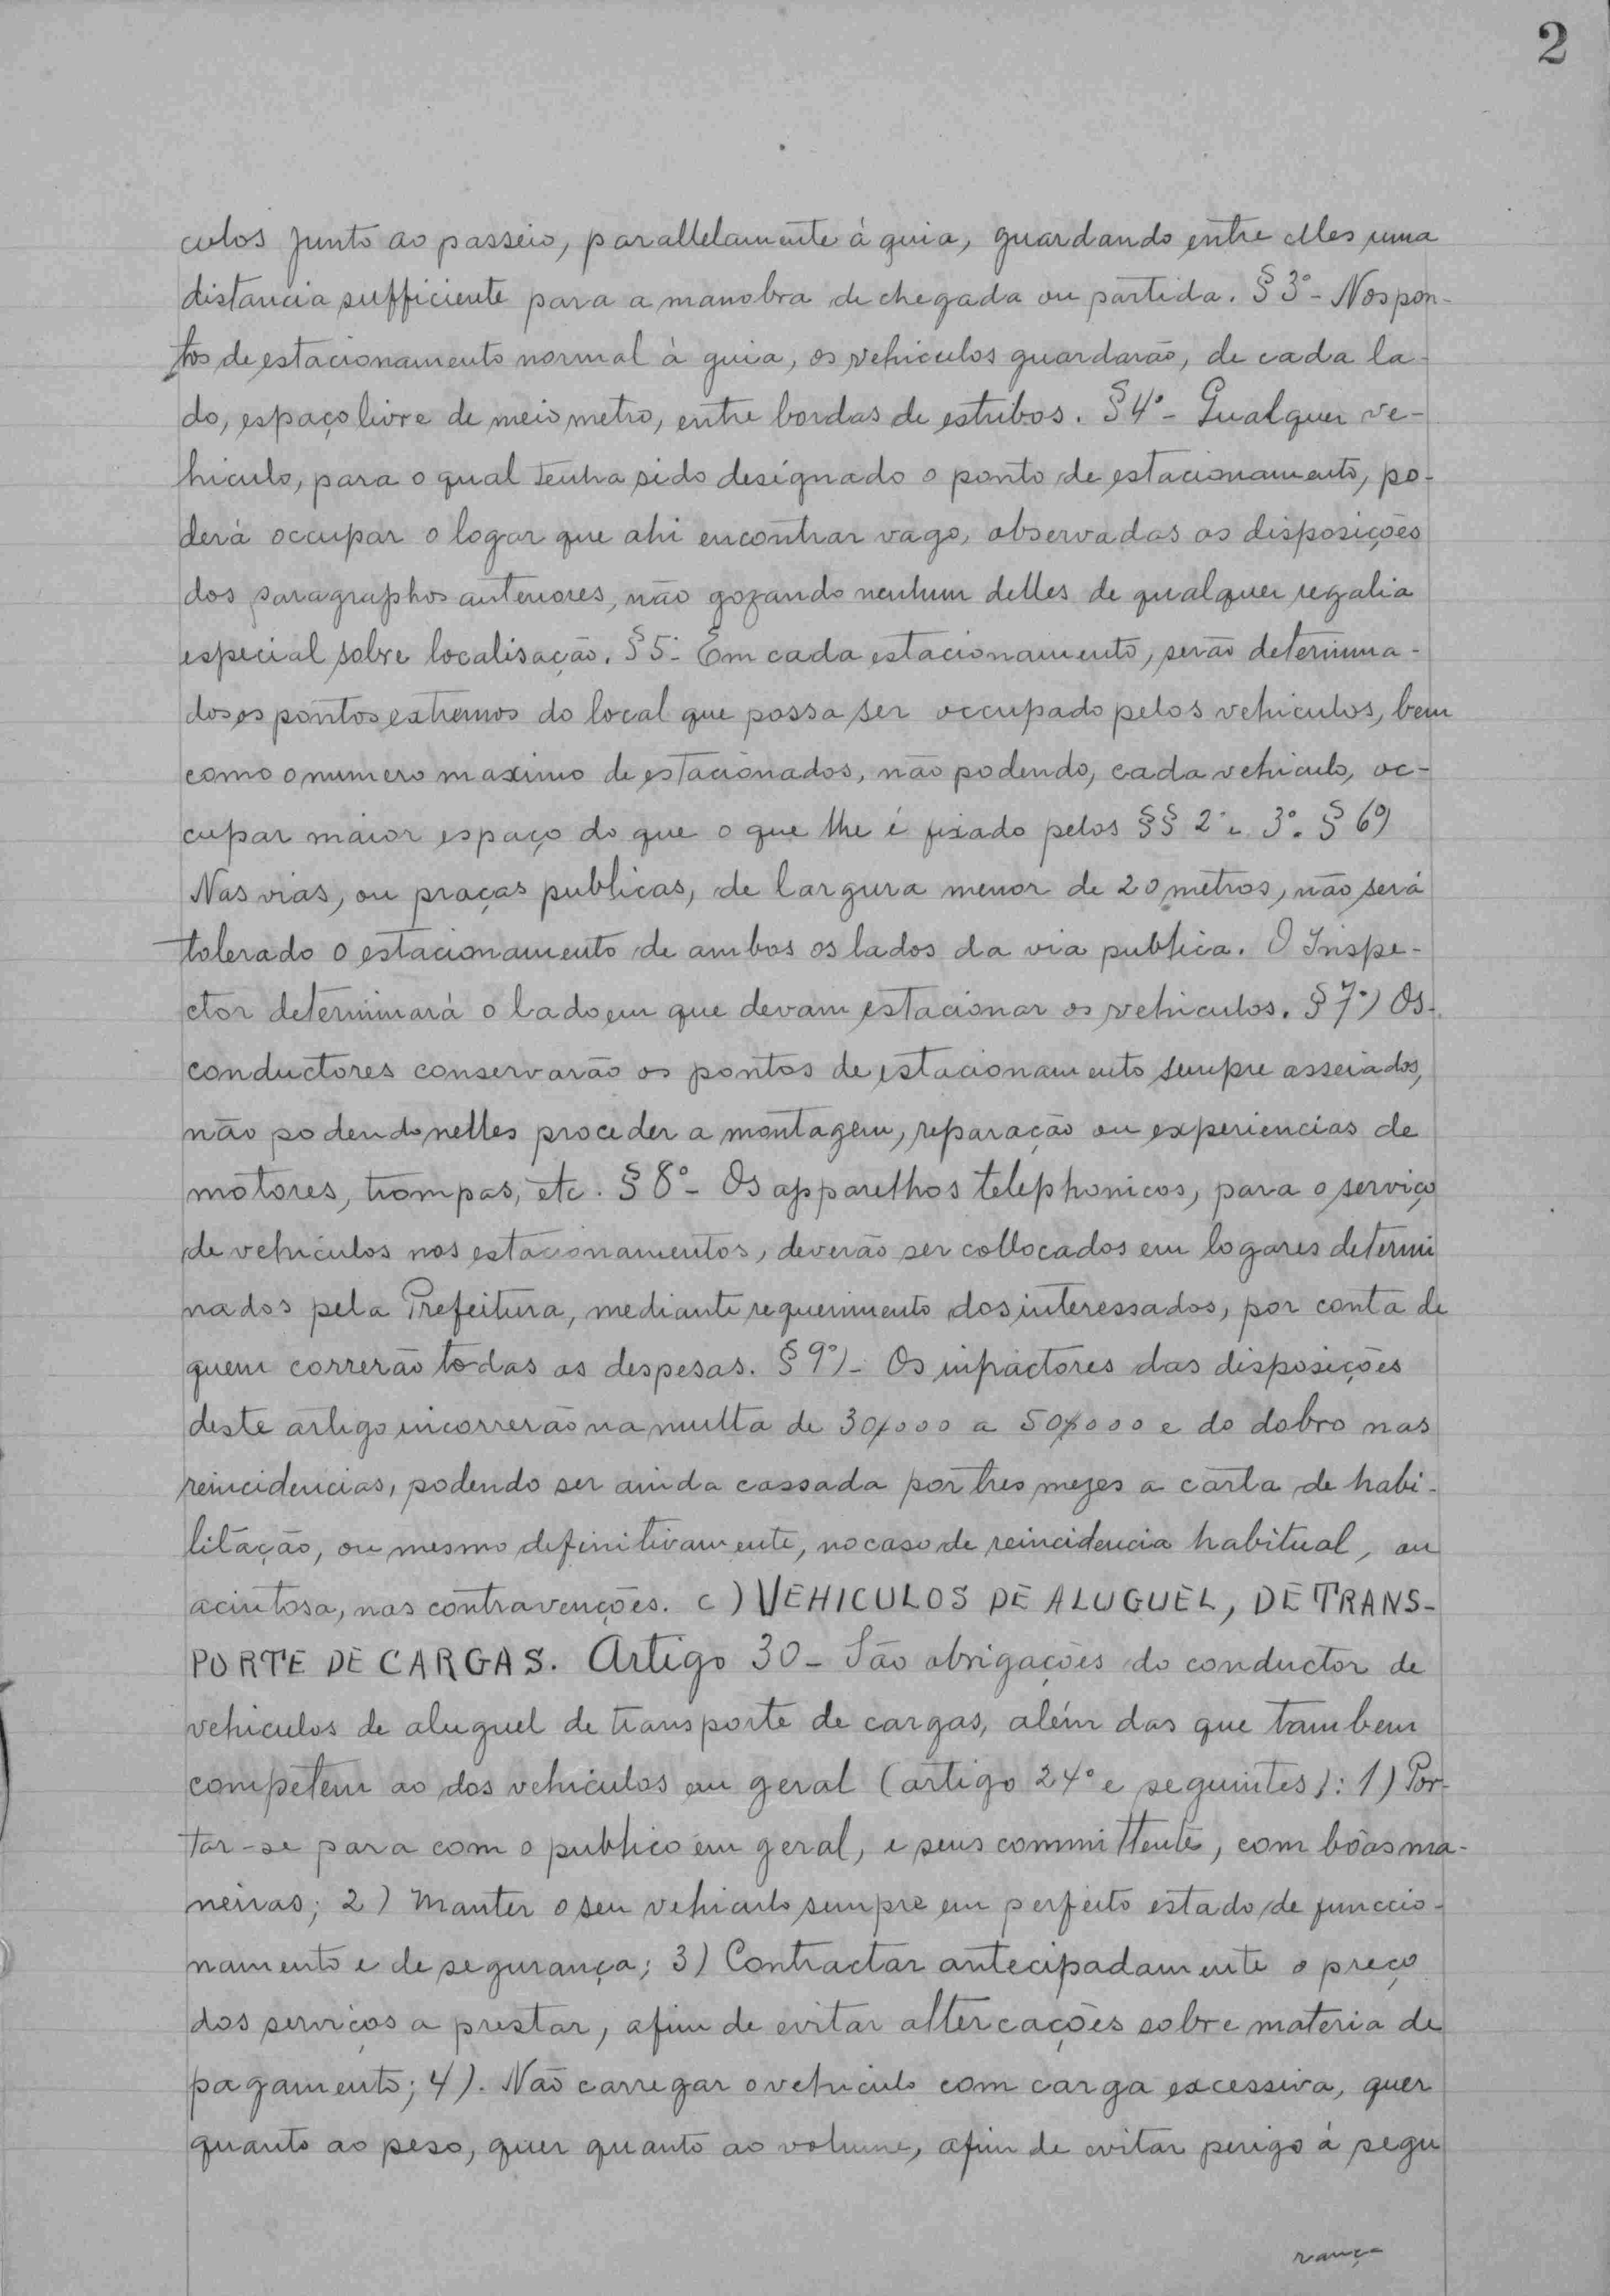 2
culos junto ao passeio, parallelamente á guia, guardando entre elles uma
distancia sufficiente para a manobra de chegada ou partida. § 3º - Nos pon-
tos de estacionamento normal à guia, os vehiculos guardarão, de cada la-
do, espaço livre de meio metro, entre bordas de estribos. § 4º - Qualquer ve-
hiculo, para o qual tenha sido designado o ponto de estacionamento, po-
derá occupar o logar que ahi encontrar vago, observadas as disposições
dos paragraphos anteriores, não gozando nenhum delles de qualquer regalia
especial sobre localisação. § 5º - Em cada estacionamento, serão determina-
dos os pontos extremos do local que possa ser occupado pelos vehiculos, bem
como o numero maximo de estacionados, não podendo, cada vehiculo, oc-
cupar maior espaço do que o que lhe é fixado pelos §§ 2º e 3º. § 6º)
Nas vias, ou praças publicas, de largura menor de 20 metros, não será
tolerado o estacionamento de ambos os lados da via publica. O Inspe-
ctor determinará o lado em que devam estacionar os vehiculos. § 7º) Os
conductores conservarão os pontos de estacionamento sempre asseiados,
não podendo nelles proceder a montagem, reparação ou experiencias de
motores, trompas, etc. § 8º - Os apparelhos telephonicos, para o serviço
de vehiculos nos estacionamentos, deverão ser collocados em logares determi
nados pela Prefeitura, mediante requerimento dos interessados, por conta de
quem correrão todas as despesas. § 9º) - Os infractores das disposições
deste artigo incorrerão na multa de 30$000 a 50$000 e do dobro nas
reincidencias, podendo ser ainda cassada por tres mezes a carta de habi-
litação, ou mesmo definitivamente, no caso de reincidencia habitual, ou
acintosa, nas contravenções. c) VEHICULOS DE ALUGUEL, DE TRANS-
PORTE DE CARGAS. Artigo 30 - São obrigações do conductor de
vehiculos de aluguel de transporte de cargas, além das que tambem
competem ao dos vehiculos em geral (artigo 24º e seguintes): 1) Por-
tar-se para com o publico em geral, e seus committente, com bôas ma-
neiras; 2) Manter o seu vehiculo sempre em perfeito estado de funccio-
namento e de segurança; 3) Contractar antecipadamente o preço
dos serviços a prestar, afim de evitar altercações sobre materia de
pagamento; 4). Não carregar o vehiculo com carga excessiva, quer
quanto ao peso, quer quanto ao volume, afim de evitar perigo á segu
rança